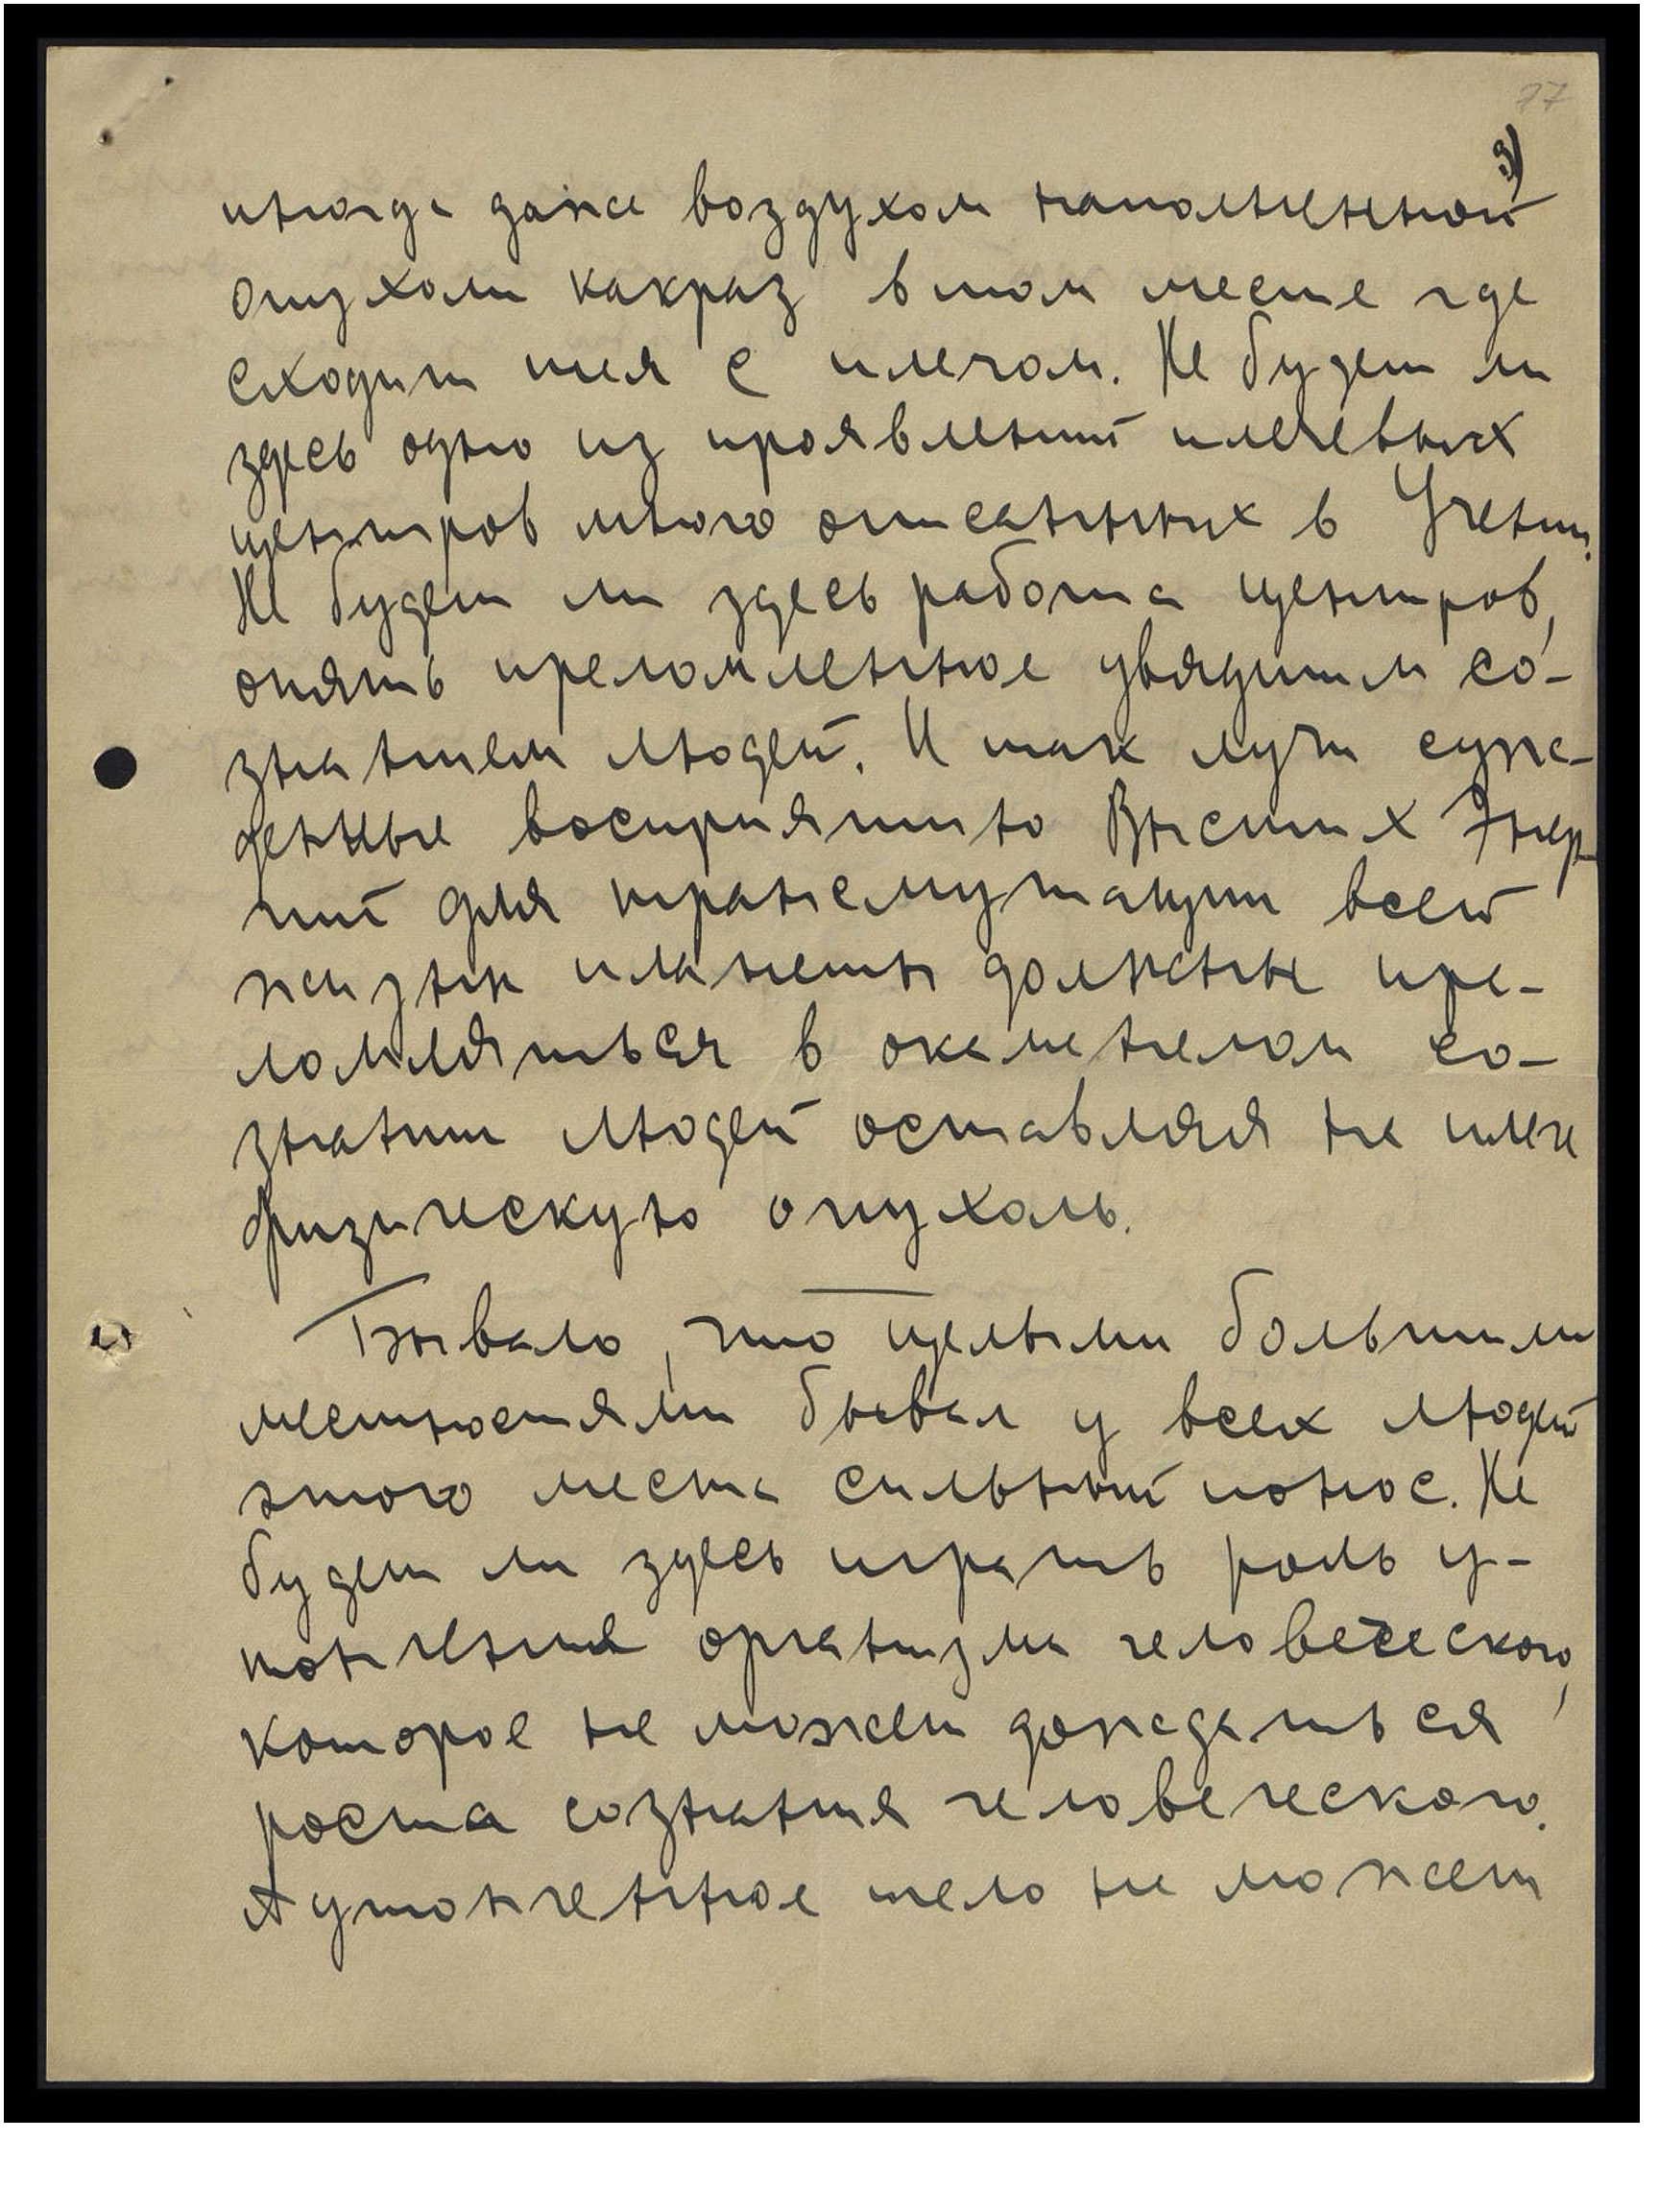 77
3)
иногда даже воздухом наполненной
опухоли какраз в том месте где
сходит шея с плечом. Не будет ли
здесь одно из проявлений плечевых
центров много описанных в Учении.
Не будет ли здесь работа центров,
опять преломленное увядшим со-
знанием людей. И так лучи суж-
денные восприятию Высших Энер-
гий для трансмутации всей
жизни планеты должны пре-
ломляться в окаменелом со-
знании людей оставляя на плече
физическую опухоль.
Бывало, что целыми большими
местностями бывал у всех людей
этого места сильный понос. Не
будет ли здесь играть роль у-
тончения организма человеческого,
которое не может дождаться
роста сознания человеческого.
А утонченное тело не может